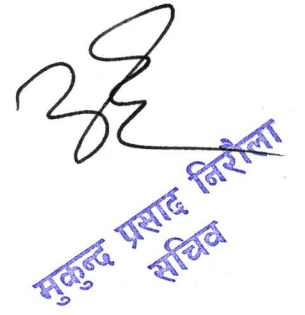 मुकुन्द प्रसाद निरौला
सचिव